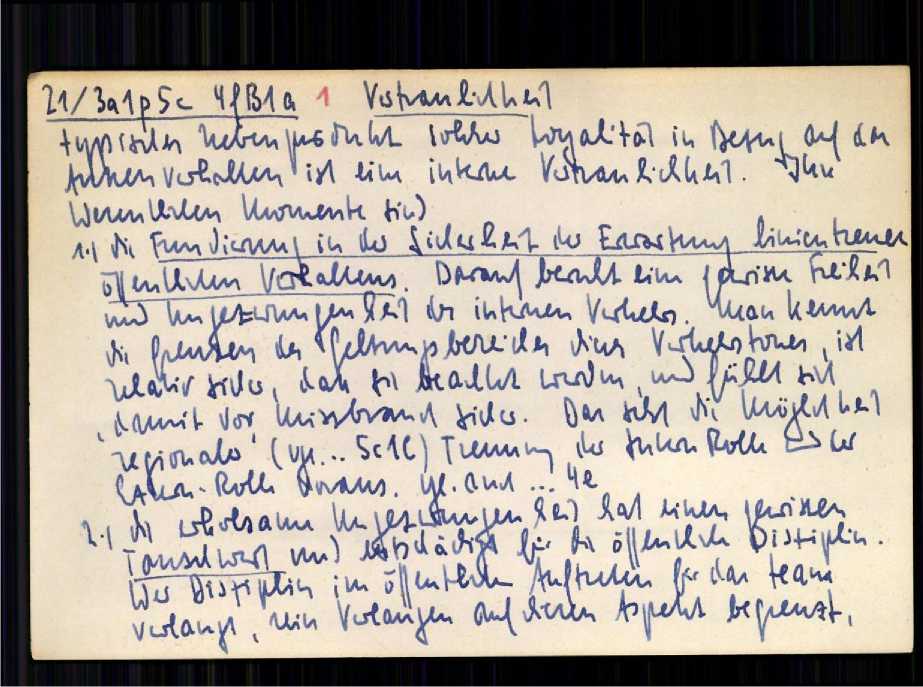 21/3a1p5c 4fB1a 1 Vertraulichkeit
typisches Nebenprodukt solcher Loyalität in Bezug auf das
Aussenverhalten ist eine interne Vertraulichkeit. Ihre
wesentlichen Momente sind
1.) die Fundierung in der Sicherheit der Erwartung linientreuen
öffentlichen Verhaltens. Darauf beruht eine gewisse Freiheit
und Ungezwungenheit des internen Verkehrs. Man kennt
die Grenzen des Geltungsbereiches dieses Verkehrstones, ist
relativ sicher, dass sie beachtet werden, und fühlt sich
damit vor Missbrauch sicher. Das setzt die Möglichkeit
regionaler (vgl... 5c1C) Trennung der Innen Rolle der
Aussen-Rolle voraus. vgl. auch ... 4e
2.) die erholsame Ungezwungenheit hat einen gewissen
Tauschwert und entschädigt für die öffentliche Disziplin.
Wer Disziplin im öffentlichen Auftreten für das team
verlangt, sein Verlangen auf diesen Aspekt begrenzt,